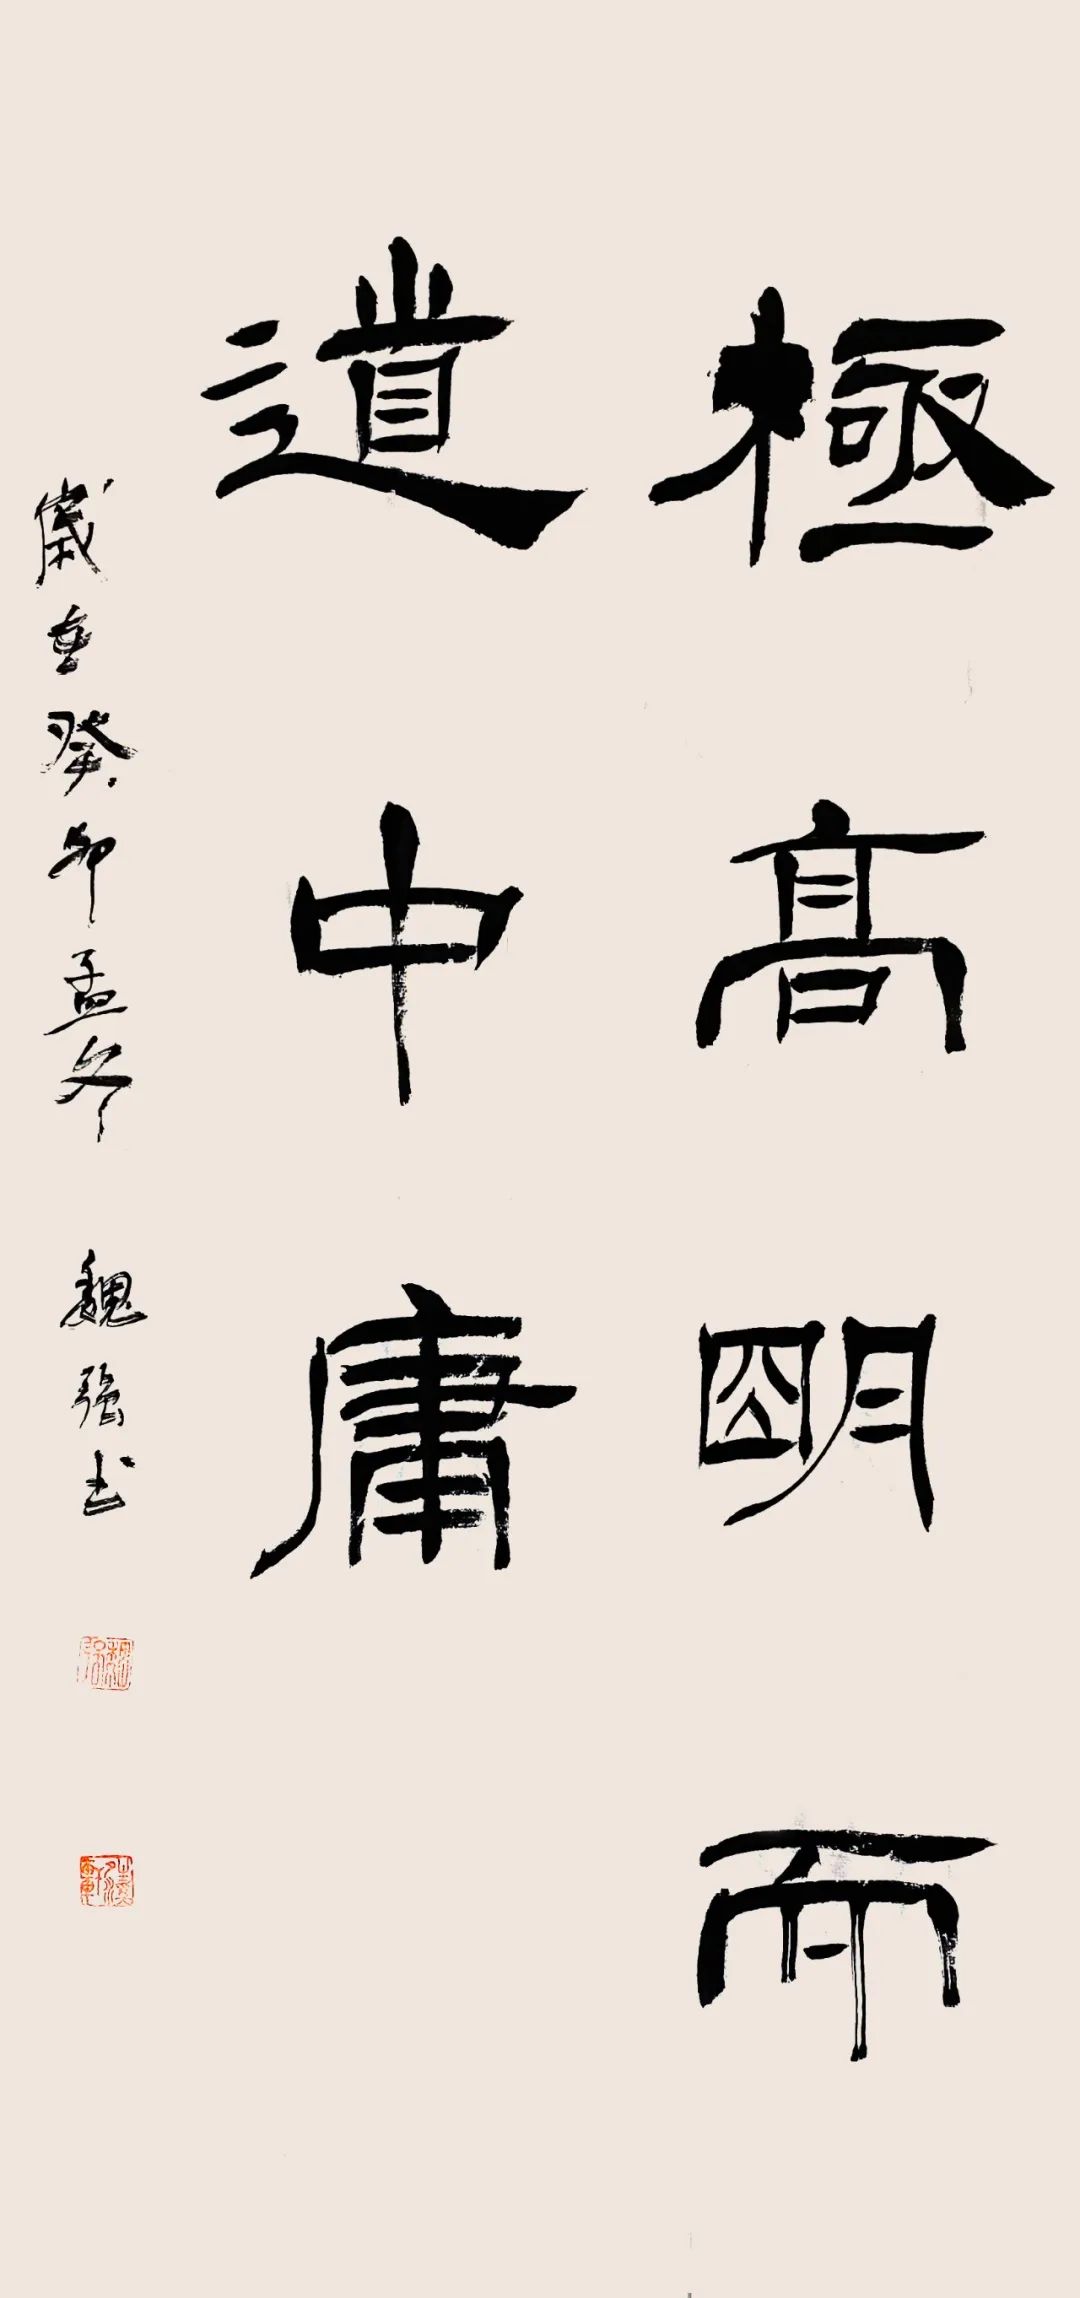 極高明而
道中庸
歲在癸卯孟冬 魏强书